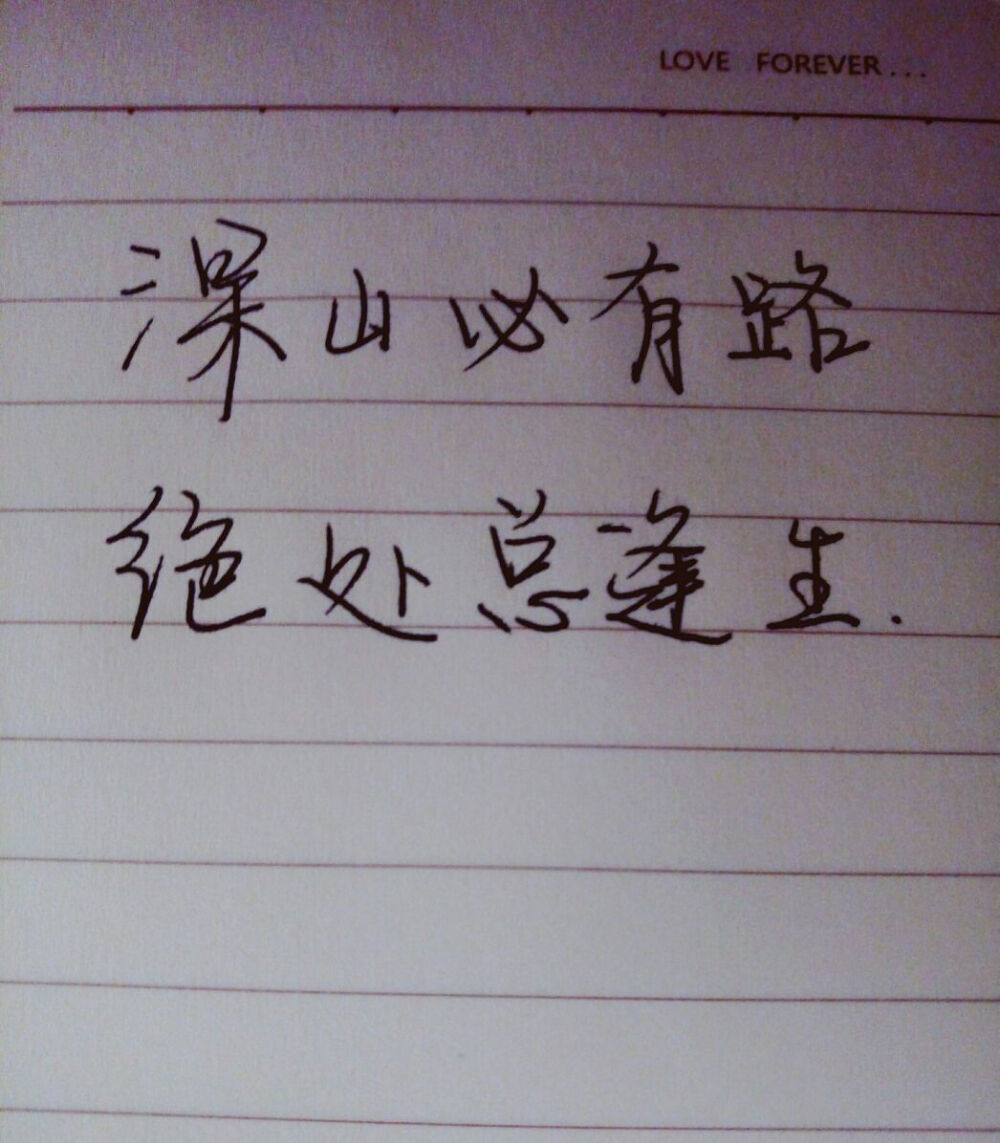 LOVE FOREVER...
深山必有路
绝处总逢生.